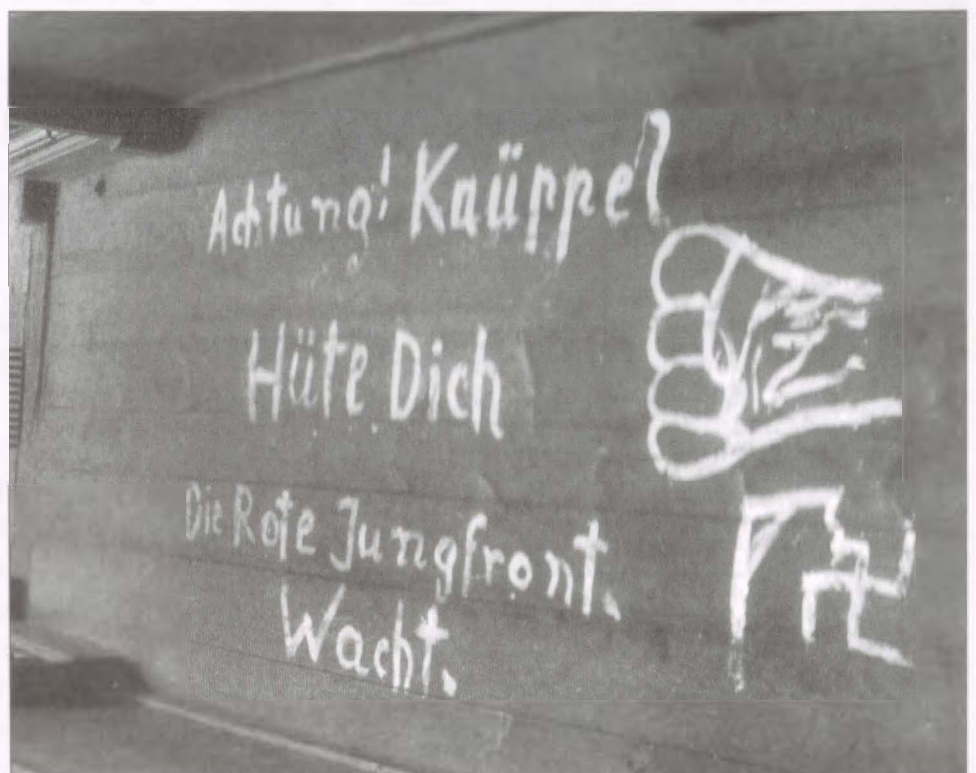 Achtung! Kaüppel
Hüte Dich
Die Rote Jungfront.
Wacht.